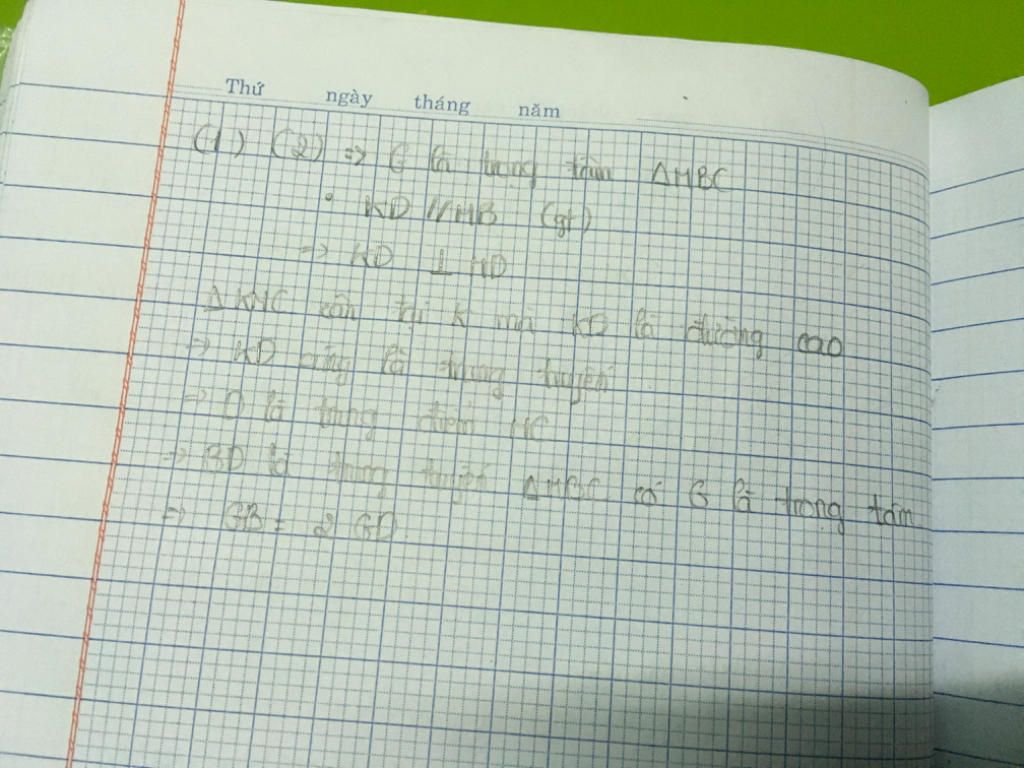 Thứ ngày tháng năm
(1) (2) => G là trọng tâm ΔMBC
• KD // MB (gt)
=> KD ⊥ MD
ΔKMC cân tại K mà KD là đường cao
=> KD cũng là trung tuyến
=> D là trung điểm MC
=> BD là trung tuyến ΔMBC có G là trọng tâm
=> GB = 2 GD.